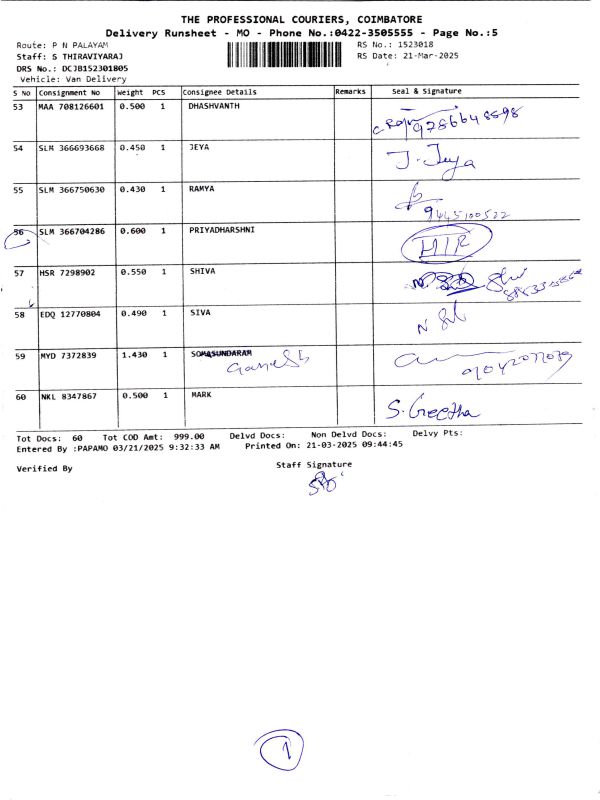 THE PROFESSIONAL COURIERS, COIMBATORE
Delivery Runsheet - MO - Phone No.:0422-3505555 - Page No.:5
Route: P N PALAYAM
RS No.: 1523018
Staff: S THIRAVIYARAJ
RS Date: 21-Mar-2025
DRS No.: DCJB152301805
Vehicle: Van Delivery
S No Consignment No Weight PCS Consignee Details Remarks Seal & Signature
53 MAA 708126601 0.500 1 DHASHVANTH
9786648598
54 SLM 366693668 0.450 1 JEYA J. Jeya
55 SLM 366750630 0.430 1 RAMYA
9445100522
56 SLM 366704286 0.600 1 PRIYADHARSHNI HIR
57 HSR 7298902 0.550 1 SHIVA
58 EDQ 12770804 0.490 1 SIVA
59 MYD 7372839 1.430 1 SOMASUNDARAM
60 NKL 8347867 0.500 1 MARK S. Geetha
Tot Docs: 60 Tot COD Amt: 999.00 Delvd Docs: Non Delvd Docs: Delvy Pts:
Entered By :PAPAMO 03/21/2025 9:32:33 AM Printed On: 21-03-2025 09:44:45
Verified By Staff Signature
1